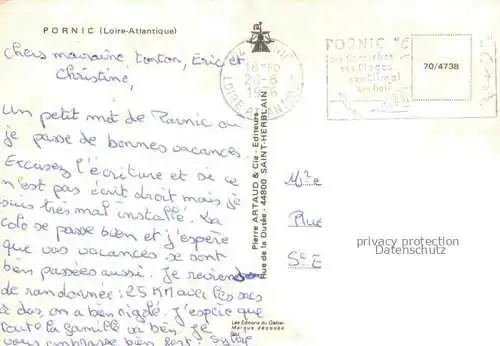 PORNIC (Loire-Atlantique)
Chers marraine, tonton, Eric et
Christine,
Un petit mot de Pornic ou
je passe de bonnes vacances.
Excusez l'écriture et si ce
n'est pas écrit droit mais je
suis très mal installé. La
colo se passe bien et j'espère
que vos vacances se sont
bien passées aussi. Je reviens
de randonnée : 25 KM avec les sacs
à dos, on a bien rigolé. J'espère que
toute la famille va bien. Je
vous embrasse bien fort. Sylvie
Pierre ARTAUD & Cie - Editeurs
Rue de la Dusée - 44800 SAINT-HERBLAIN
Les Editions du Gabier
Marque déposée
18 H 30
20-8
LOIRE ATLANTIQUE
PORNIC
ses plages
70/4738
Mme
S E
privacy protection
Datenschutz